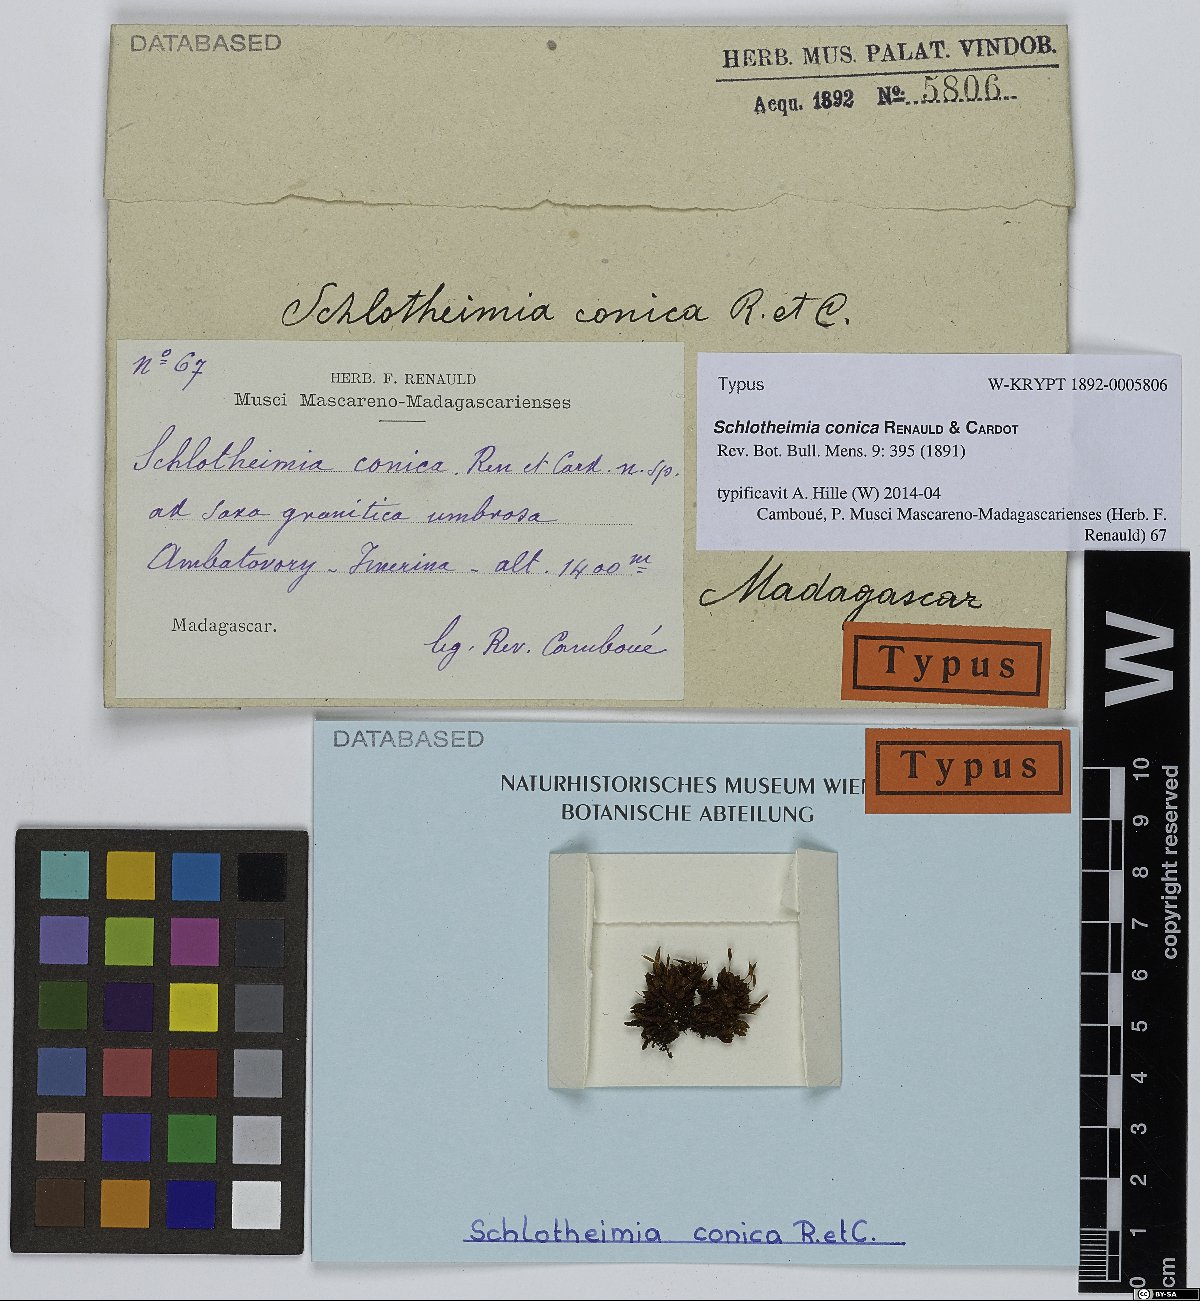 DATABASED
HERB. MUS. PALAT. VINDOB.
Acqu. 1892 No. 5806
Schlotheimia conica R. et C.
No 67
HERB. F. RENAULD
Musci Mascareno-Madagascarienses
Schlotheimia conica. Ren et Card. n. sp.
ad saxa granitica umbrosa
Ambatovory - Imerina - alt. 1400 m
Madagascar.
leg. Rev. Camboué
Typus W-KRYPT 1892-0005806
Schlotheimia conica RENAULD & CARDOT
Rev. Bot. Bull. Mens. 9: 395 (1891)
typificavit A. Hille (W) 2014-04
Camboué, P. Musci Mascareno-Madagascarienses (Herb. F.
Renauld) 67
Madagascar
Typus
DATABASED
Typus
NATURHISTORISCHES MUSEUM WIEN
BOTANISCHE ABTEILUNG
Schlotheimia conica R. et C.
W
10
9
8
7
6
5
4
3
2
1
0
cm
copyright reserved
cc BY-SA